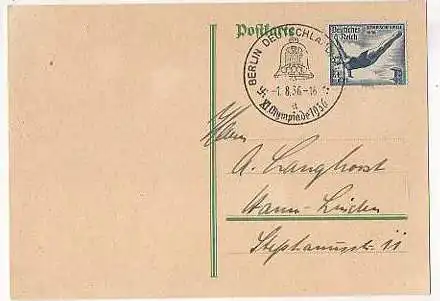 Postkarte
BERLIN DEUTSCHLAND
-1.8.36-16
a
XI. Olympiade 1936
Deutsches Reich
Herrn
A. Langhorst
Hann.-Linden
Stephanusstr. 11